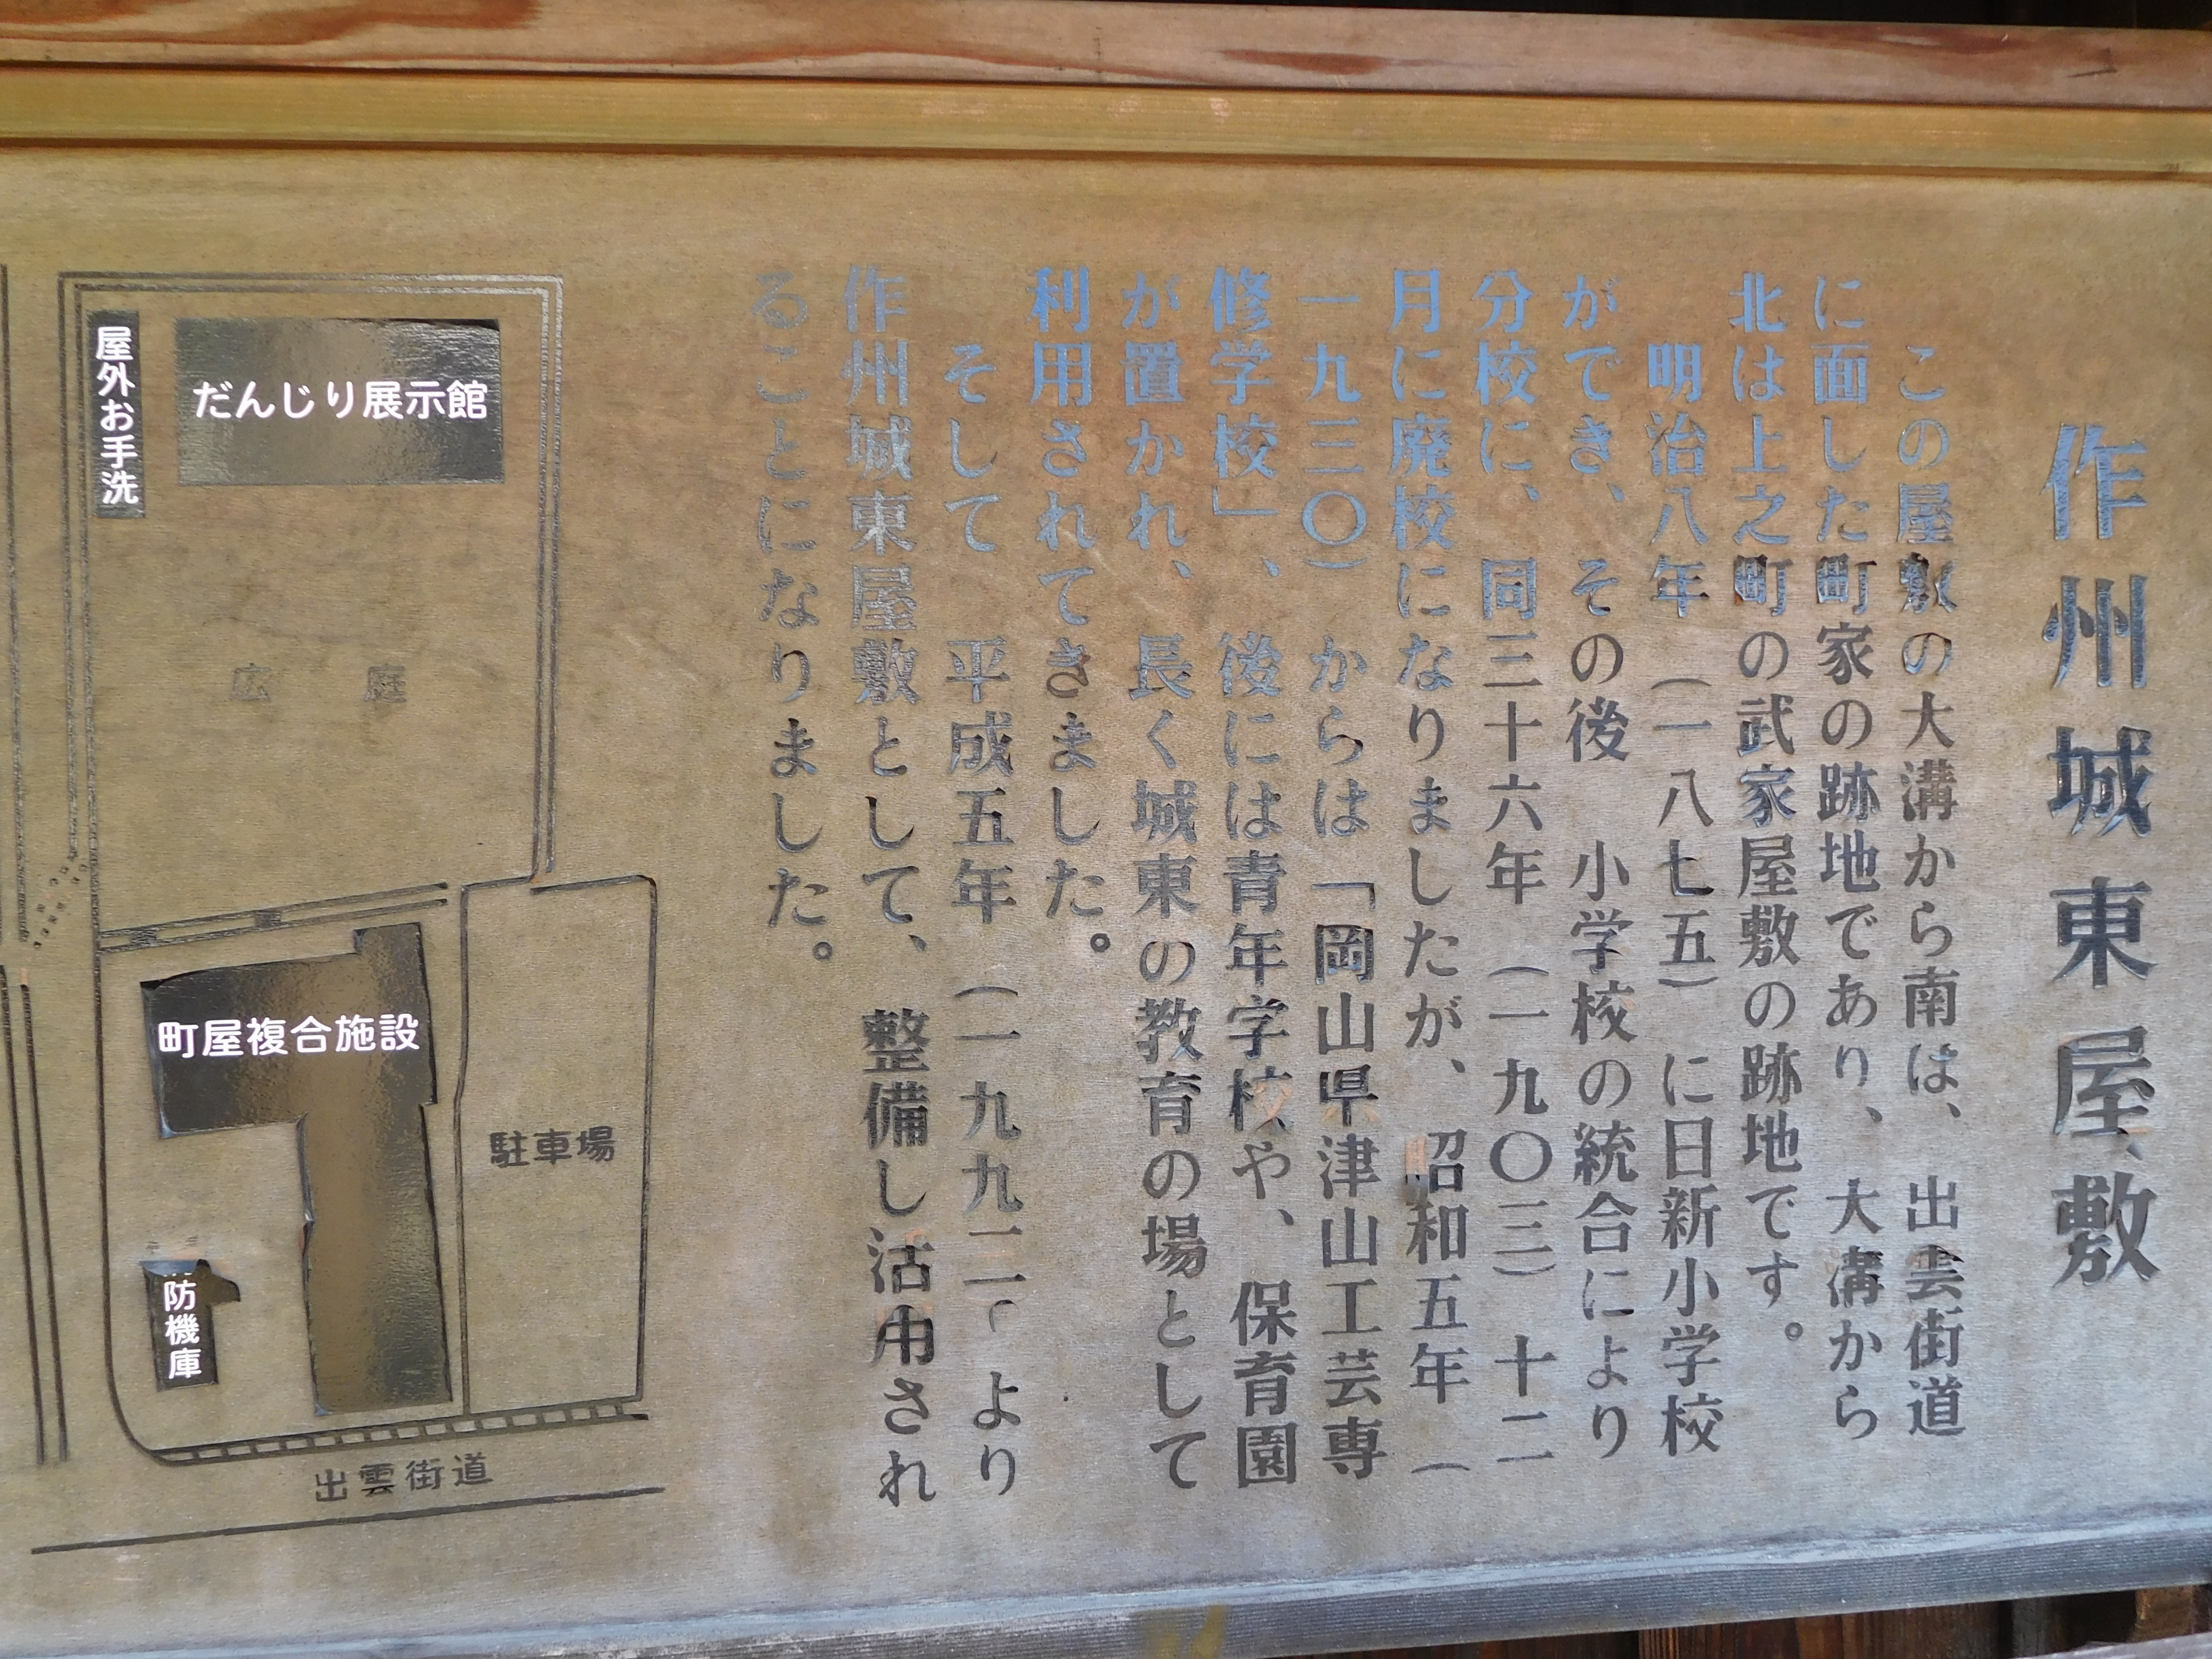 作州城東屋敷
この屋敷の大溝から南は、出雲街道
に面した町家の跡地であり、大溝から
北は上之町の武家屋敷の跡地です。
明治八年（一八七五）に日新小学校
ができ、その後 小学校の統合により
分校に、同三十六年（一九〇三）十二
月に廃校になりましたが、昭和五年（
一九三〇）からは「岡山県津山工芸専
修学校」、後には青年学校や、保育園
が置かれ、長く城東の教育の場として
利用されてきました。
そして 平成五年（一九九三）より
作州城東屋敷として、整備し活用され
ることになりました。
だんじり展示館
屋外お手洗
広庭
町屋複合施設
駐車場
防機庫
出雲街道